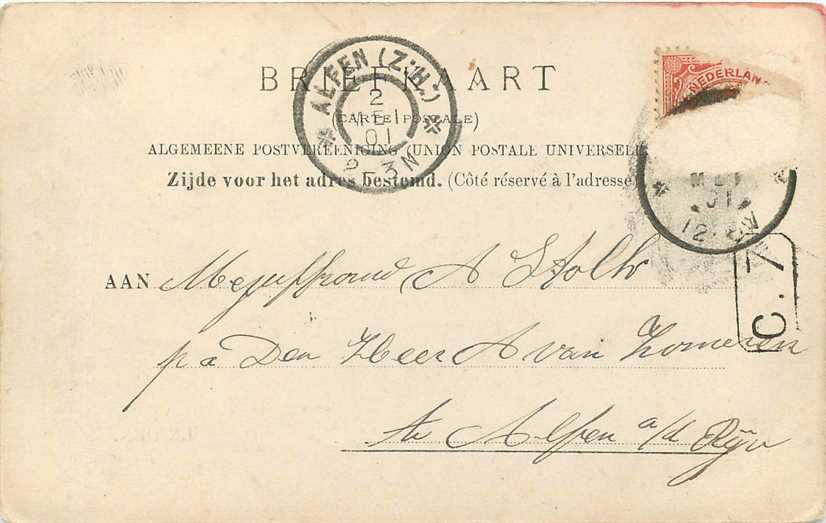 BRIEFKAART
(CARTE POSTALE)
ALGEMEENE POSTVEREENIGING (UNION POSTALE UNIVERSELLE
Zijde voor het adres bestemd. (Côté réservé à l'adresse)
ALFEN (Z:H:)
2
MEI
01
2-3N
NEDERLAN
MEI
01
12
C. 7
AAN Mejuffrouw A Stolk
p a Den Heer A van Zomeren
te Alfen a/d Rijn